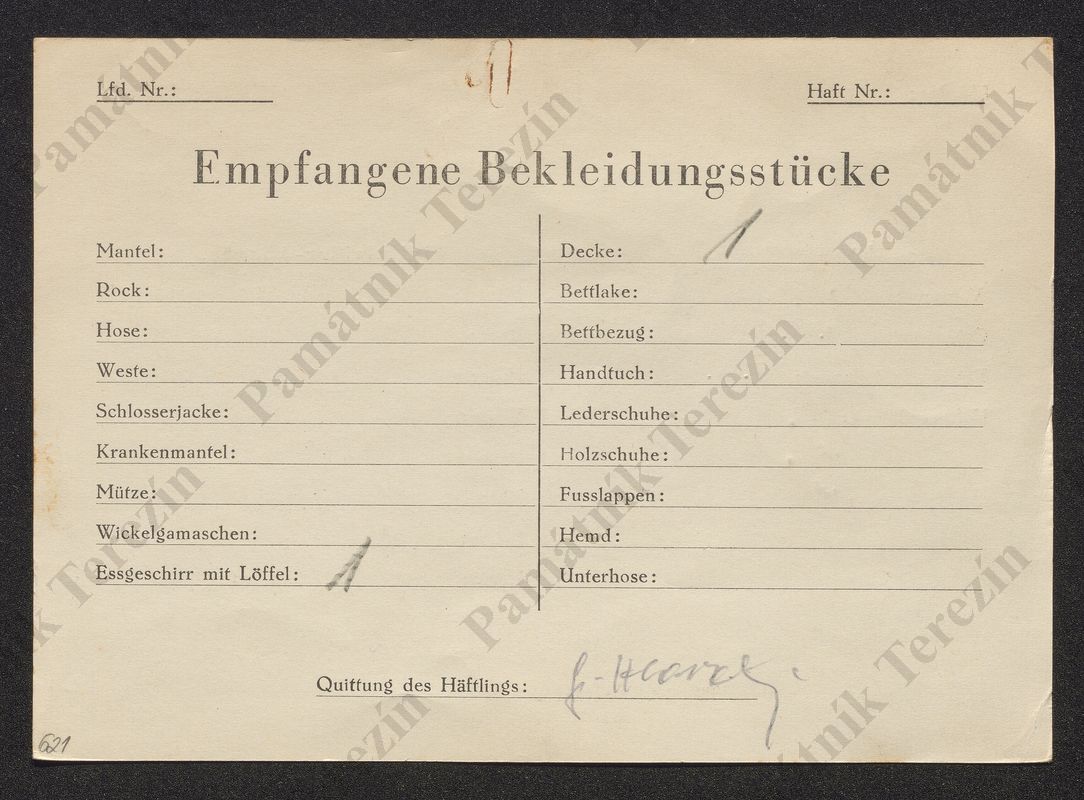 Lfd. Nr.:
Haft Nr.:
Empfangene Bekleidungsstücke
Mantel:
Rock:
Hose:
Weste:
Schlosserjacke:
Krankenmantel:
Mütze:
Wickelgamaschen:
Essgeschirr mit Löffel: 1
Decke: 1
Bettlake:
Bettbezug:
Handtuch:
Lederschuhe:
Holzschuhe:
Fusslappen:
Hemd:
Unterhose:
Quittung des Häftlings:
621
Památník Terezín
Památník Terezín
Památník Terezín
Památník Terezín
Památník Terezín